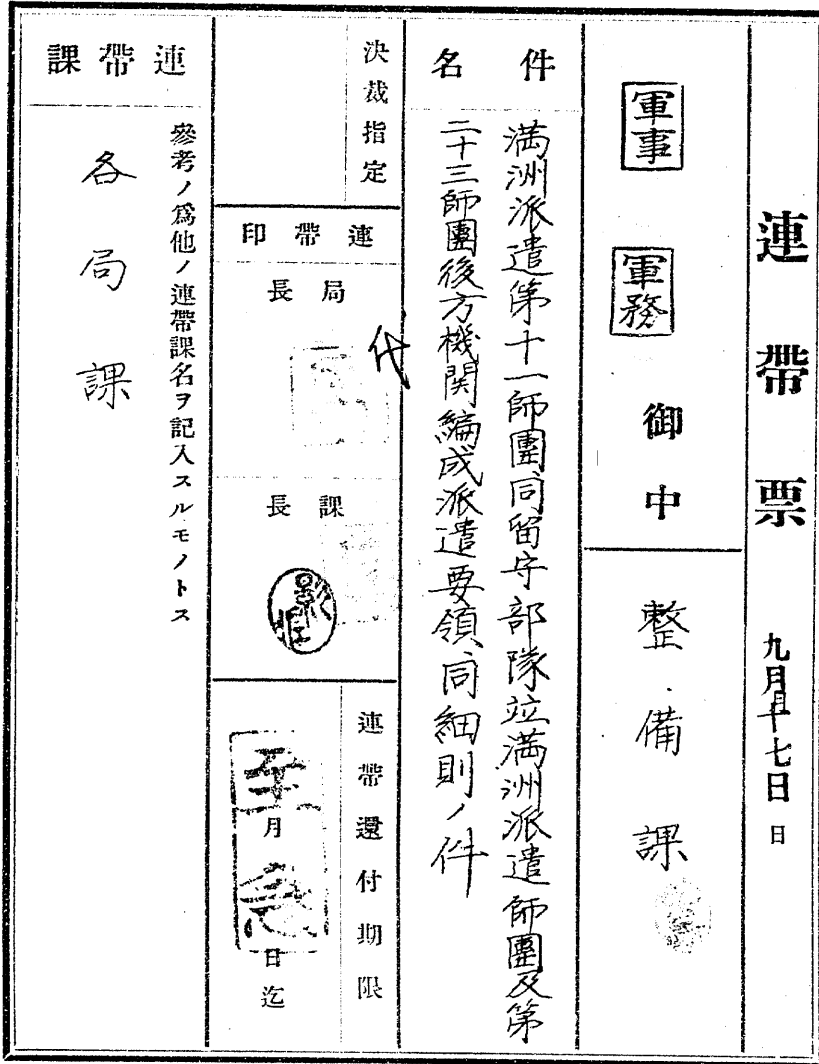 連帶票 九月十七日 日
軍事
軍務 御中
整備課
件名
満洲派遣第十一師團、同留守部隊竝満洲派遣師團及第
二十三師團後方機関編成派遣要領、同細則ノ件
決裁指定
連帶印
局長
代
課長
連帶還付期限
至急
月 日迄
連帶課
參考ノ爲他ノ連帶課名ヲ記入スルモノトス
各局課